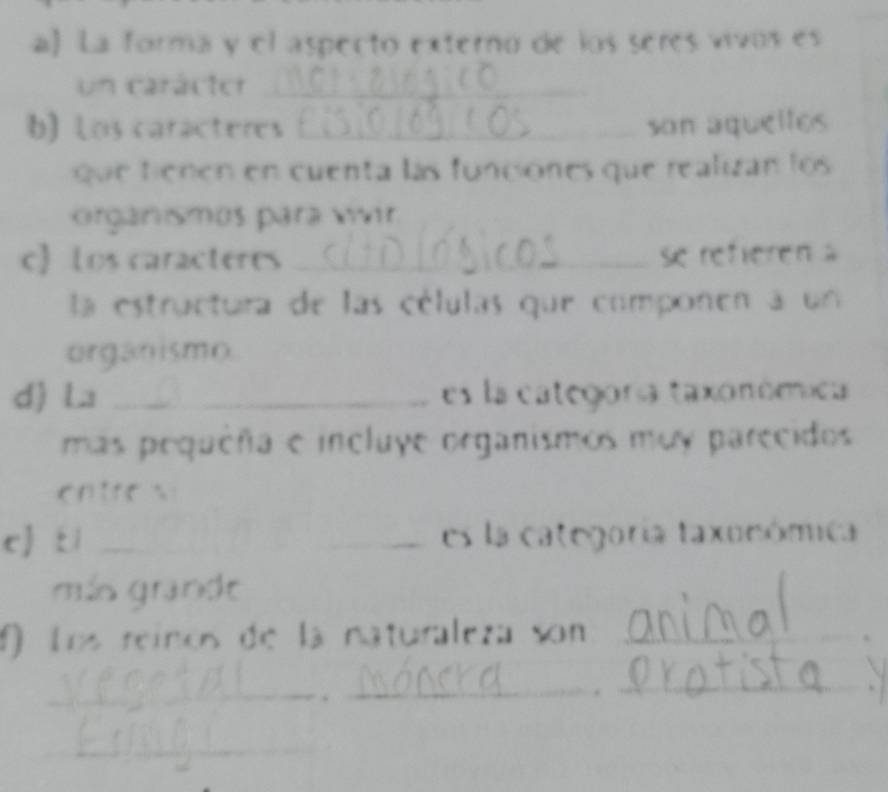 a) La forma y el aspecto externo de los seres vivos es
un carácter morfológico
b) Los caracteres fisiológicos son aquellos
que tienen en cuenta las funciones que realizan los
organismos para vivir.
c) Los caracteres citológicos se refieren a
la estructura de las células que componen a un
organismo.
d) La es la categoría taxonómica
más pequeña e incluye organismos muy parecidos
entre sí
e) El es la categoría taxonómica
más grande
f) Los reinos de la naturaleza son animal,
vegetal, mónera, protista y
Fungi.